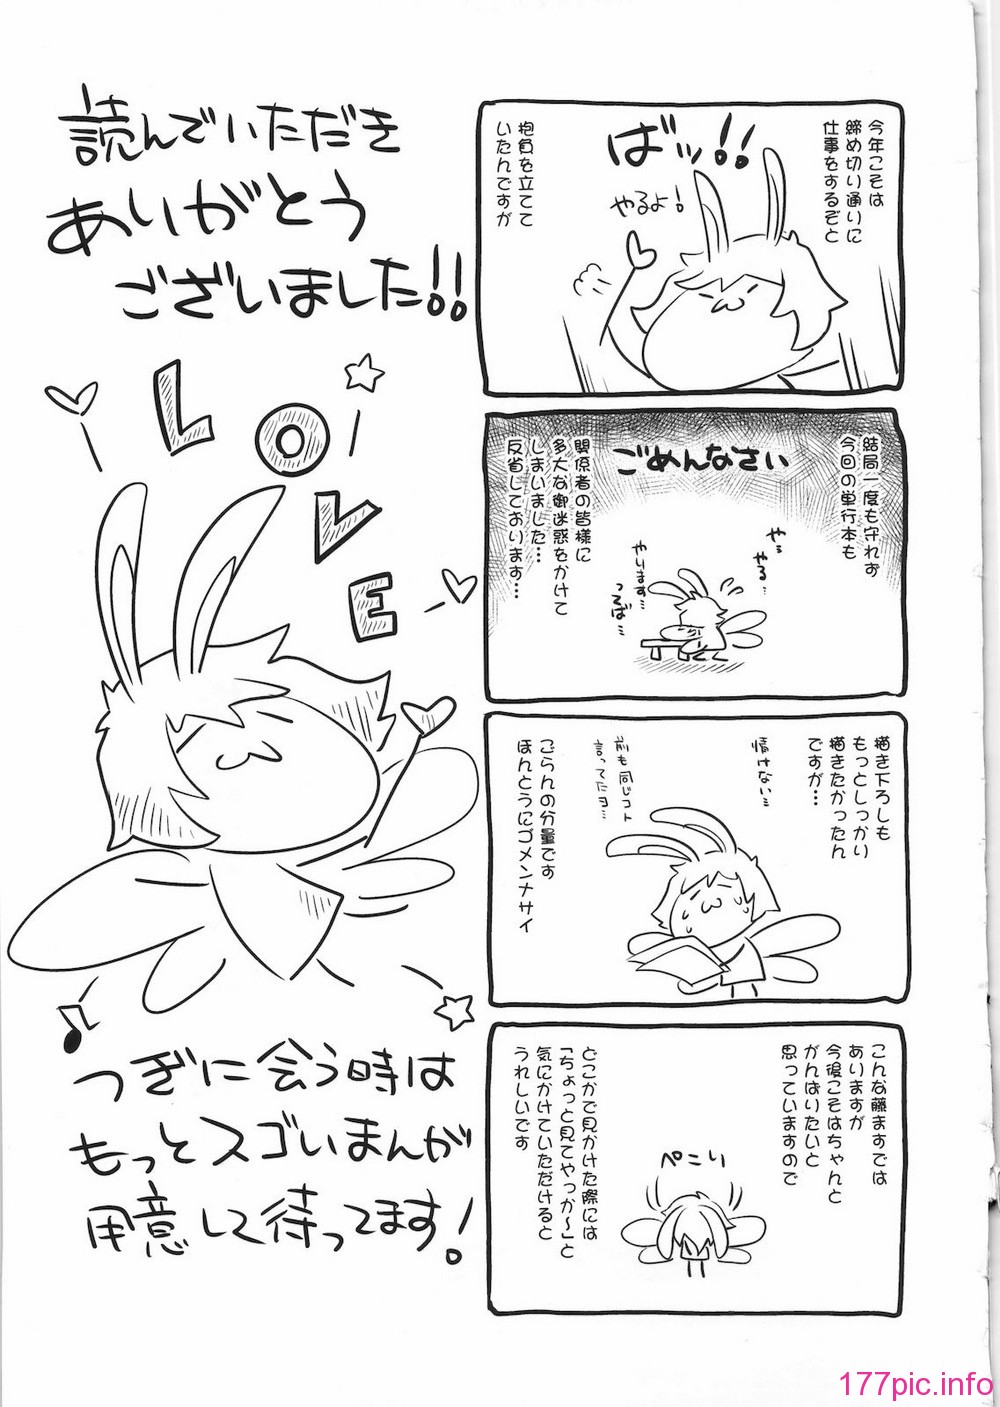 今年こそは
締め切り通りに
仕事をするぞと
ばッ!!
やるよ!
抱負を立てて
いたんですが
結局一度も守れず
今回の単行本も
ごめんなさい
やっ
やる…
やります…
つるば…
関係者の皆様に
多大な御迷惑をかけて
しまいました…
反省しております…
描き下ろしも
もっとしっかり
描きたかったん
ですが…
情けない…
前も同じコト
言ってたヨ…
ごらんの分量です
ほんとうにゴメンナサイ
こんな藤ますでは
ありますが
今後こそはちゃんと
がんばりたいと
思っていますので
ぺこり
どこかで見かけた際には
「ちょっと見てやっか〜」と
気にかけていただけると
うれしいです
読んでいただき
ありがとう
ございました!!
LOVE
つぎに会う時は
もっとスゴいまんが
用意して待ってます!
177pic.info